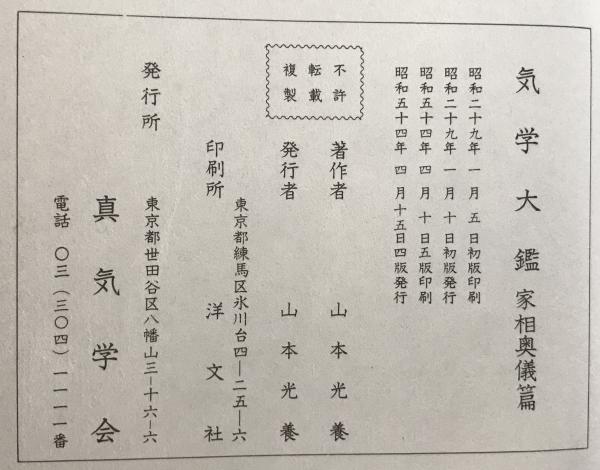 気学大鑑 家相奥儀篇
昭和二十九年 一月 五 日初版印刷
昭和二十九年 一月 十 日初版発行
昭和五十四年 四月 十 日五版印刷
昭和五十四年 四月十五日四版発行
不許
転載
複製
著作者 山本光養
発行者 山本光養
東京都練馬区氷川台四―二五―六
印刷所 洋文社
発行所 東京都世田谷区八幡山三−十六−六
真気学会
電話 〇三(三〇四)一一一一番